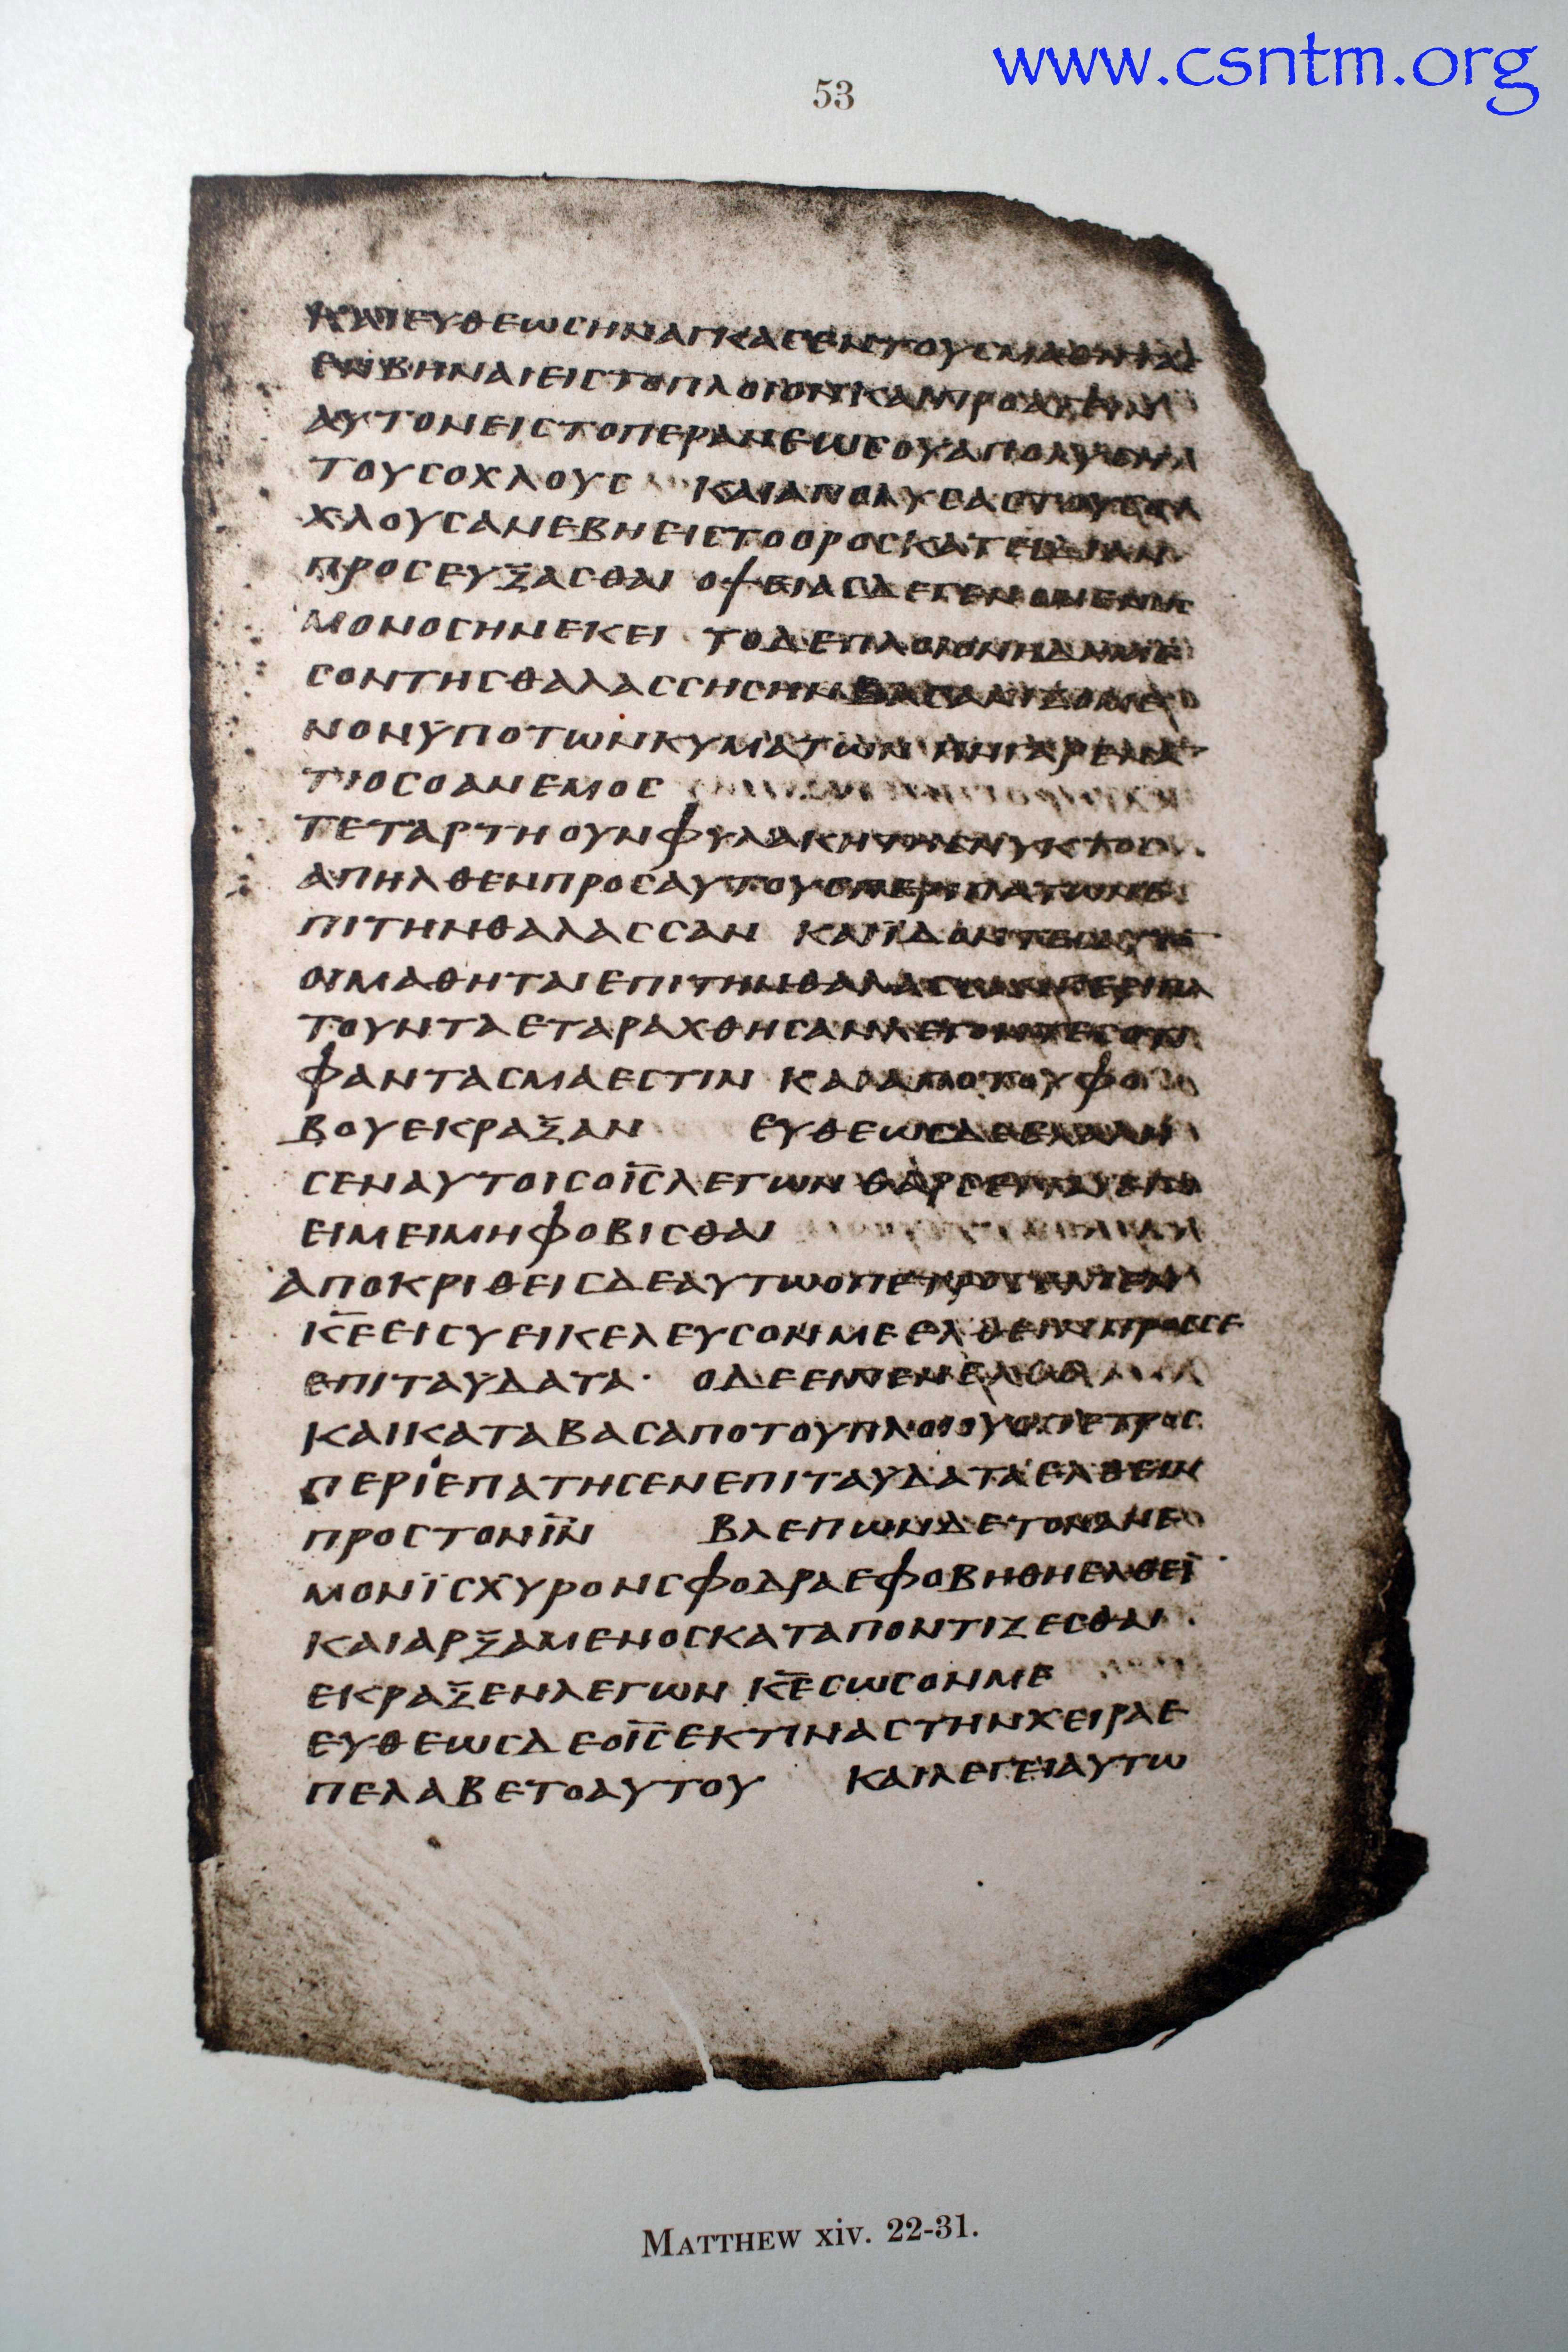 www.csntm.org
53
ΚΑΙΕΥΘΕΩϹΗΝΑΓΚΑϹΕΝΤΟΥϹΜΑΘΗΤΑϹ
ΕΜΒΗΝΑΙΕΙϹΤΟΠΛΟΙΟΝΚΑΙΠΡΟΑΓΕΙΝ
ΑΥΤΟΝΕΙϹΤΟΠΕΡΑΝΕΩϹΟΥΑΠΟΛΥϹΗ
ΤΟΥϹΟΧΛΟΥϹ ΚΑΙΑΠΟΛΥϹΑϹΤΟΥϹΟ
ΧΛΟΥϹΑΝΕΒΗΕΙϹΤΟΟΡΟϹΚΑΤΕΙΔΙΑΝ
ΠΡΟϹΕΥΞΑϹΘΑΙ ΟΨΕΙΑϹΔΕΓΕΝΟΜΕΝΗϹ
ΜΟΝΟϹΗΝΕΚΕΙ ΤΟΔΕΠΛΟΙΟΝΗΔΗΜΕ
ϹΟΝΤΗϹΘΑΛΑϹϹΗϹΗΝΒΑϹΑΝΙΖΟΜΕ
ΝΟΝΥΠΟΤΩΝΚΥΜΑΤΩΝ ΗΝΓΑΡΕΝΑ
ΤΙΟϹΟΑΝΕΜΟϹ
ΤΕΤΑΡΤΗΟΥΝΦΥΛΑΚΗΤΗϹΝΥΚΤΟϹ
ΑΠΗΛΘΕΝΠΡΟϹΑΥΤΟΥϹΠΕΡΙΠΑΤΩΝΕ
ΠΙΤΗΝΘΑΛΑϹϹΑΝ ΚΑΙΪΔΟΝΤΕϹ
ΟΙΜΑΘΗΤΑΙΕΠΙΤΗΝΘΑΛΑϹϹΑΝΠΕΡΙΠΑ
ΤΟΥΝΤΑΕΤΑΡΑΧΘΗϹΑΝΛΕΓΟΝΤΕϹΟΤΙ
ΦΑΝΤΑϹΜΑΕϹΤΙΝ ΚΑΙΑΠΟΤΟΥΦΟ
ΒΟΥΕΚΡΑΞΑΝ ΕΥΘΕΩϹΔΕΕΛΑΛΗ
ϹΕΝΑΥΤΟΙϹΟΙ̅Ϲ̅ΛΕΓΩΝΘΑΡϹΕΙΤΕ
ΕΙΜΕΙΜΗΦΟΒΙϹΘΑΙ
ΑΠΟΚΡΙΘΕΙϹΔΕΑΥΤΩΟΠΕΤΡΟϹΕΙΠΕΝ
Κ̅Ε̅ΕΙϹΥΕΙΚΕΛΕΥϹΟΝΜΕΕΛΘΕΙΝΠΡΟϹϹΕ
ΕΠΙΤΑΥΔΑΤΑ· ΟΔΕΕΙΠΕΝΕΛΘΕ
ΚΑΙΚΑΤΑΒΑϹΑΠΟΤΟΥΠΛΟΙΟΥΟΠΕΤΡΟϹ
ΠΕΡΙΕΠΑΤΗϹΕΝΕΠΙΤΑΥΔΑΤΑΕΛΘΕΙΝ
ΠΡΟϹΤΟΝΙ̅Ν̅ ΒΛΕΠΩΝΔΕΤΟΝΑΝΕ
ΜΟΝΪϹΧΥΡΟΝϹΦΟΔΡΑΕΦΟΒΗΘΗΕΛΘΕΙ̅
ΚΑΙΑΡΞΑΜΕΝΟϹΚΑΤΑΠΟΝΤΙΖΕϹΘΑΙ
ΕΚΡΑΞΕΝΛΕΓΩΝ Κ̅Ε̅ϹΩϹΟΝΜΕ
ΕΥΘΕΩϹΔΕΟΙ̅Ϲ̅ΕΚΤΙΝΑϹΤΗΝΧΕΙΡΑΕ
ΠΕΛΑΒΕΤΟΑΥΤΟΥ ΚΑΙΛΕΓΕΙΑΥΤΩ
MATTHEW xiv. 22-31.